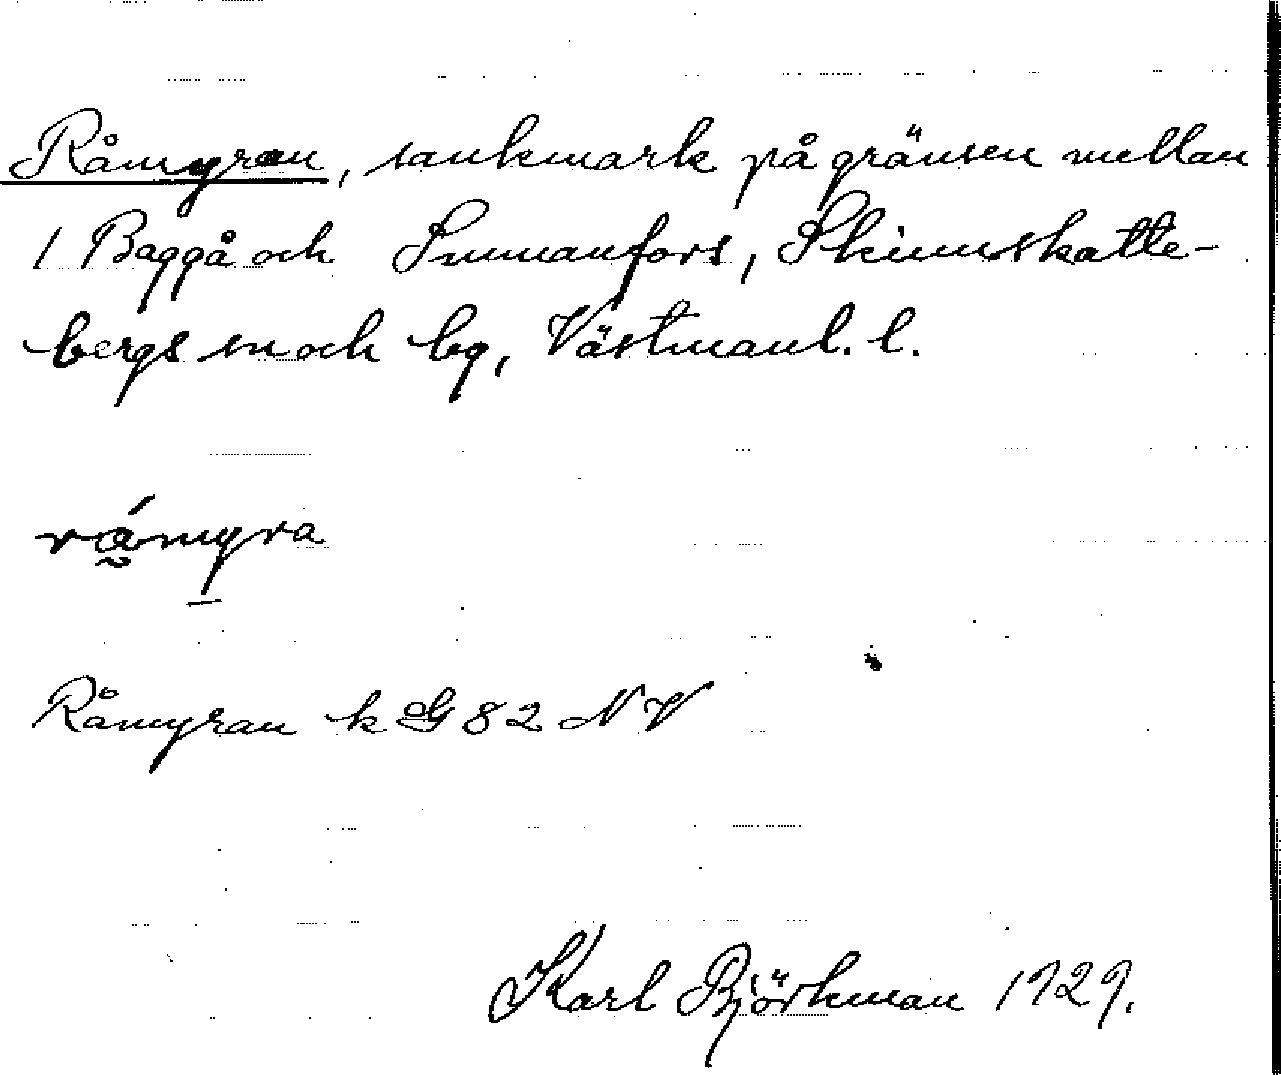 Råmyran, sankmark på gränsen mellan
/ Baggå och Sunnanfors, Skinnskatte-
bergs sn och bg, Västmanl. l.
råmyra
Råmyran k G 82 NV
Karl Björkman 1929.